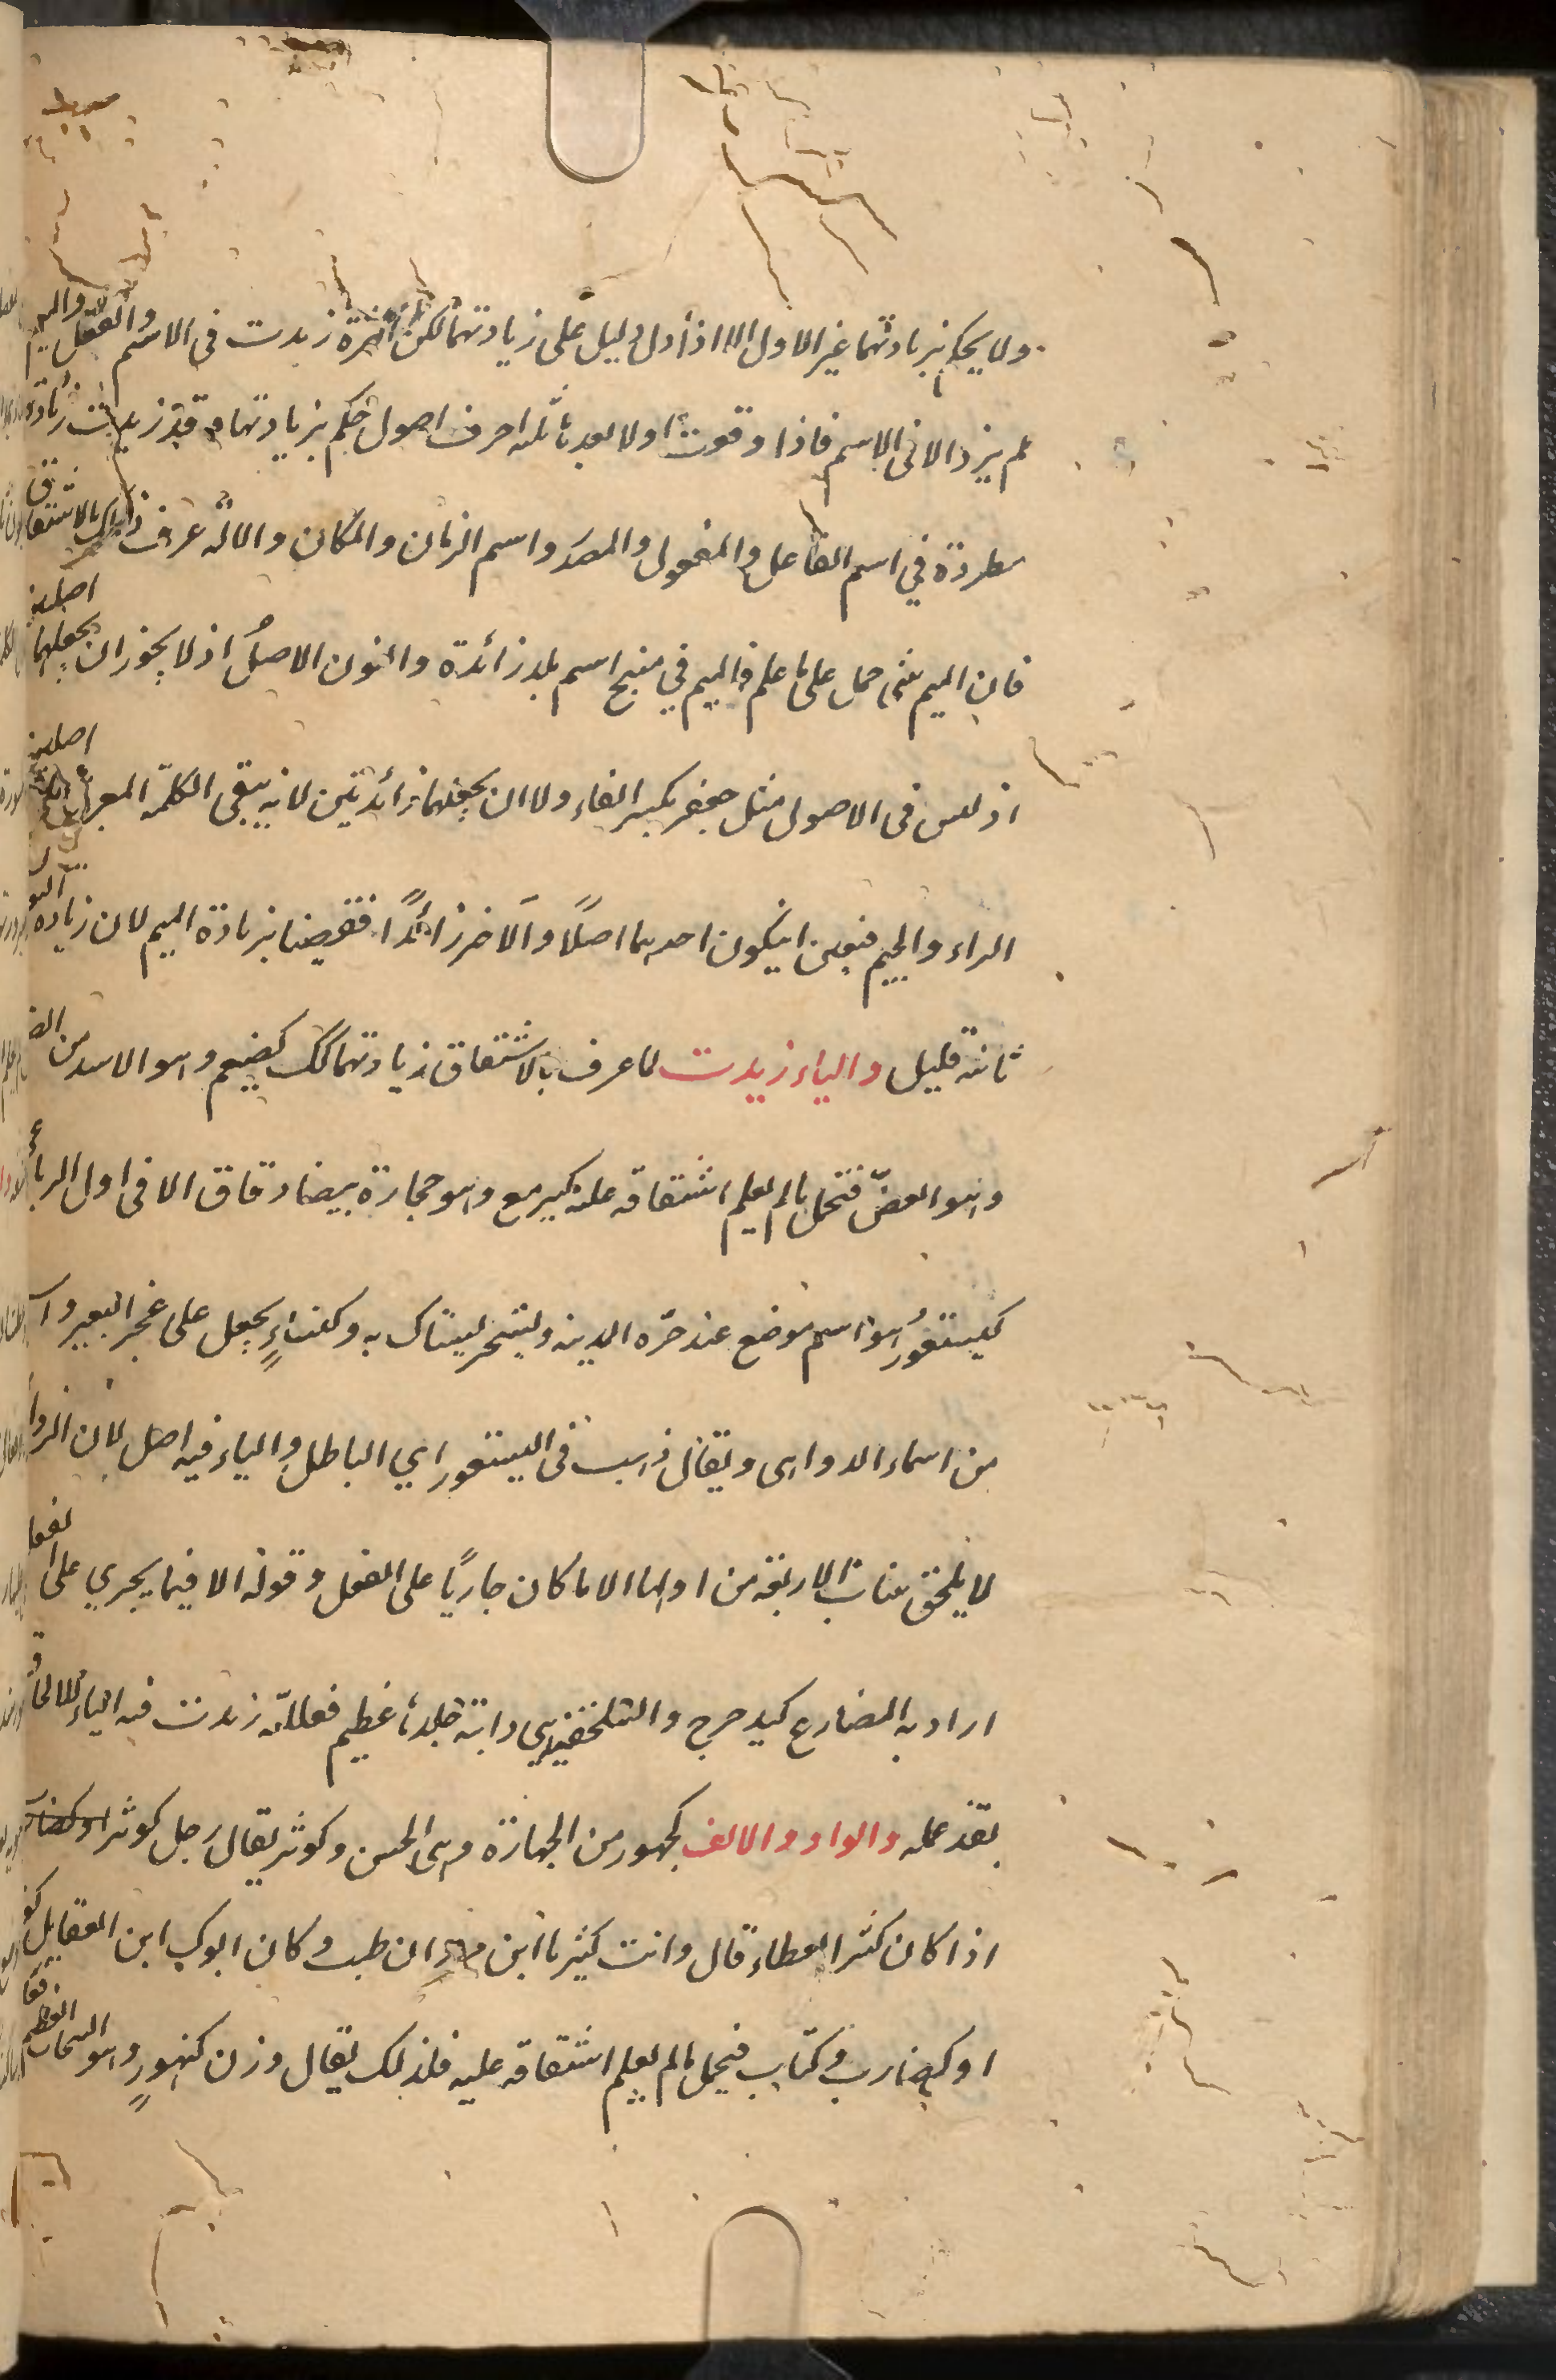 ولا يحكم بزيادتهما غير الاول الا اذا دل دليل على زيادتهما لكن الهمزة زيدت في الاسم والفعل والميم
لم يزد الا في الاسم فاذا وقعت اولا بعد ثلثه احرف اصول حكم بزيادتها وقد زيدت زيادة
مطردة في اسم الفاعل والمفعول والمصدر واسم الزمان والمكان والالة عرف ذلك بالاشتقاق
فان الميم حمل على ما علم فالميم في منبج اسم بلد زائدة والنون الاصل اذ لا يجوز ان يجعلهما اصلية
اذ ليس في الاصول مثل جعفر بكسر الفاء ولا ان يجعلهما زائدتين لانه يبقى الكلمة المعربة
الراء والجيم فتعين ان يكون احدهما اصلًا والآخر زائدًا فقضينا بزيادة الميم لان زيادة النو
ثانية قليل والياء زيدت لما عرف بالاشتقاق زيادتها كك كضيغم وهو الاسد من الضـ
وهو العضّ فتحمل ما لم يعلم اشتقاقه عليه كيرمع وهو حجارة بيضاء رقاق الا في اول الرباعي
كيستعورُ هو اسم موضع عند حرّه المدينه ولشجر ليستاك به وكلناءٍ يجعل على عجز البعير وا
من اسماء الدواهى ويقال ذهب في اليستعور اي الباطل والياء فيه اصل لان الزوا
لا يلحق بنات الاربعة من اولها الا ما كان جاريًا على الفعل وقوله الا فيما يجري على الفعل
اراد به المضارع كيدحرج والسلحفية هي دابة جلدها عظيم فعللية زيدت فيه الياء للالحاق
بقذعملة والواو والالف كجهور من الجهارة وهى الحسن وكوثر يقال رجل كوثر
اذا كان كثير العطاء قال وانت كثير يا ابن مروان طيب وكان ابوك ابن العقايل كو
او كضارب وكتاب فيحمل ما لم يعلم اشتقاقه عليه فلذلك يقال وزن كنهورٍ وهو السحاب العظيم